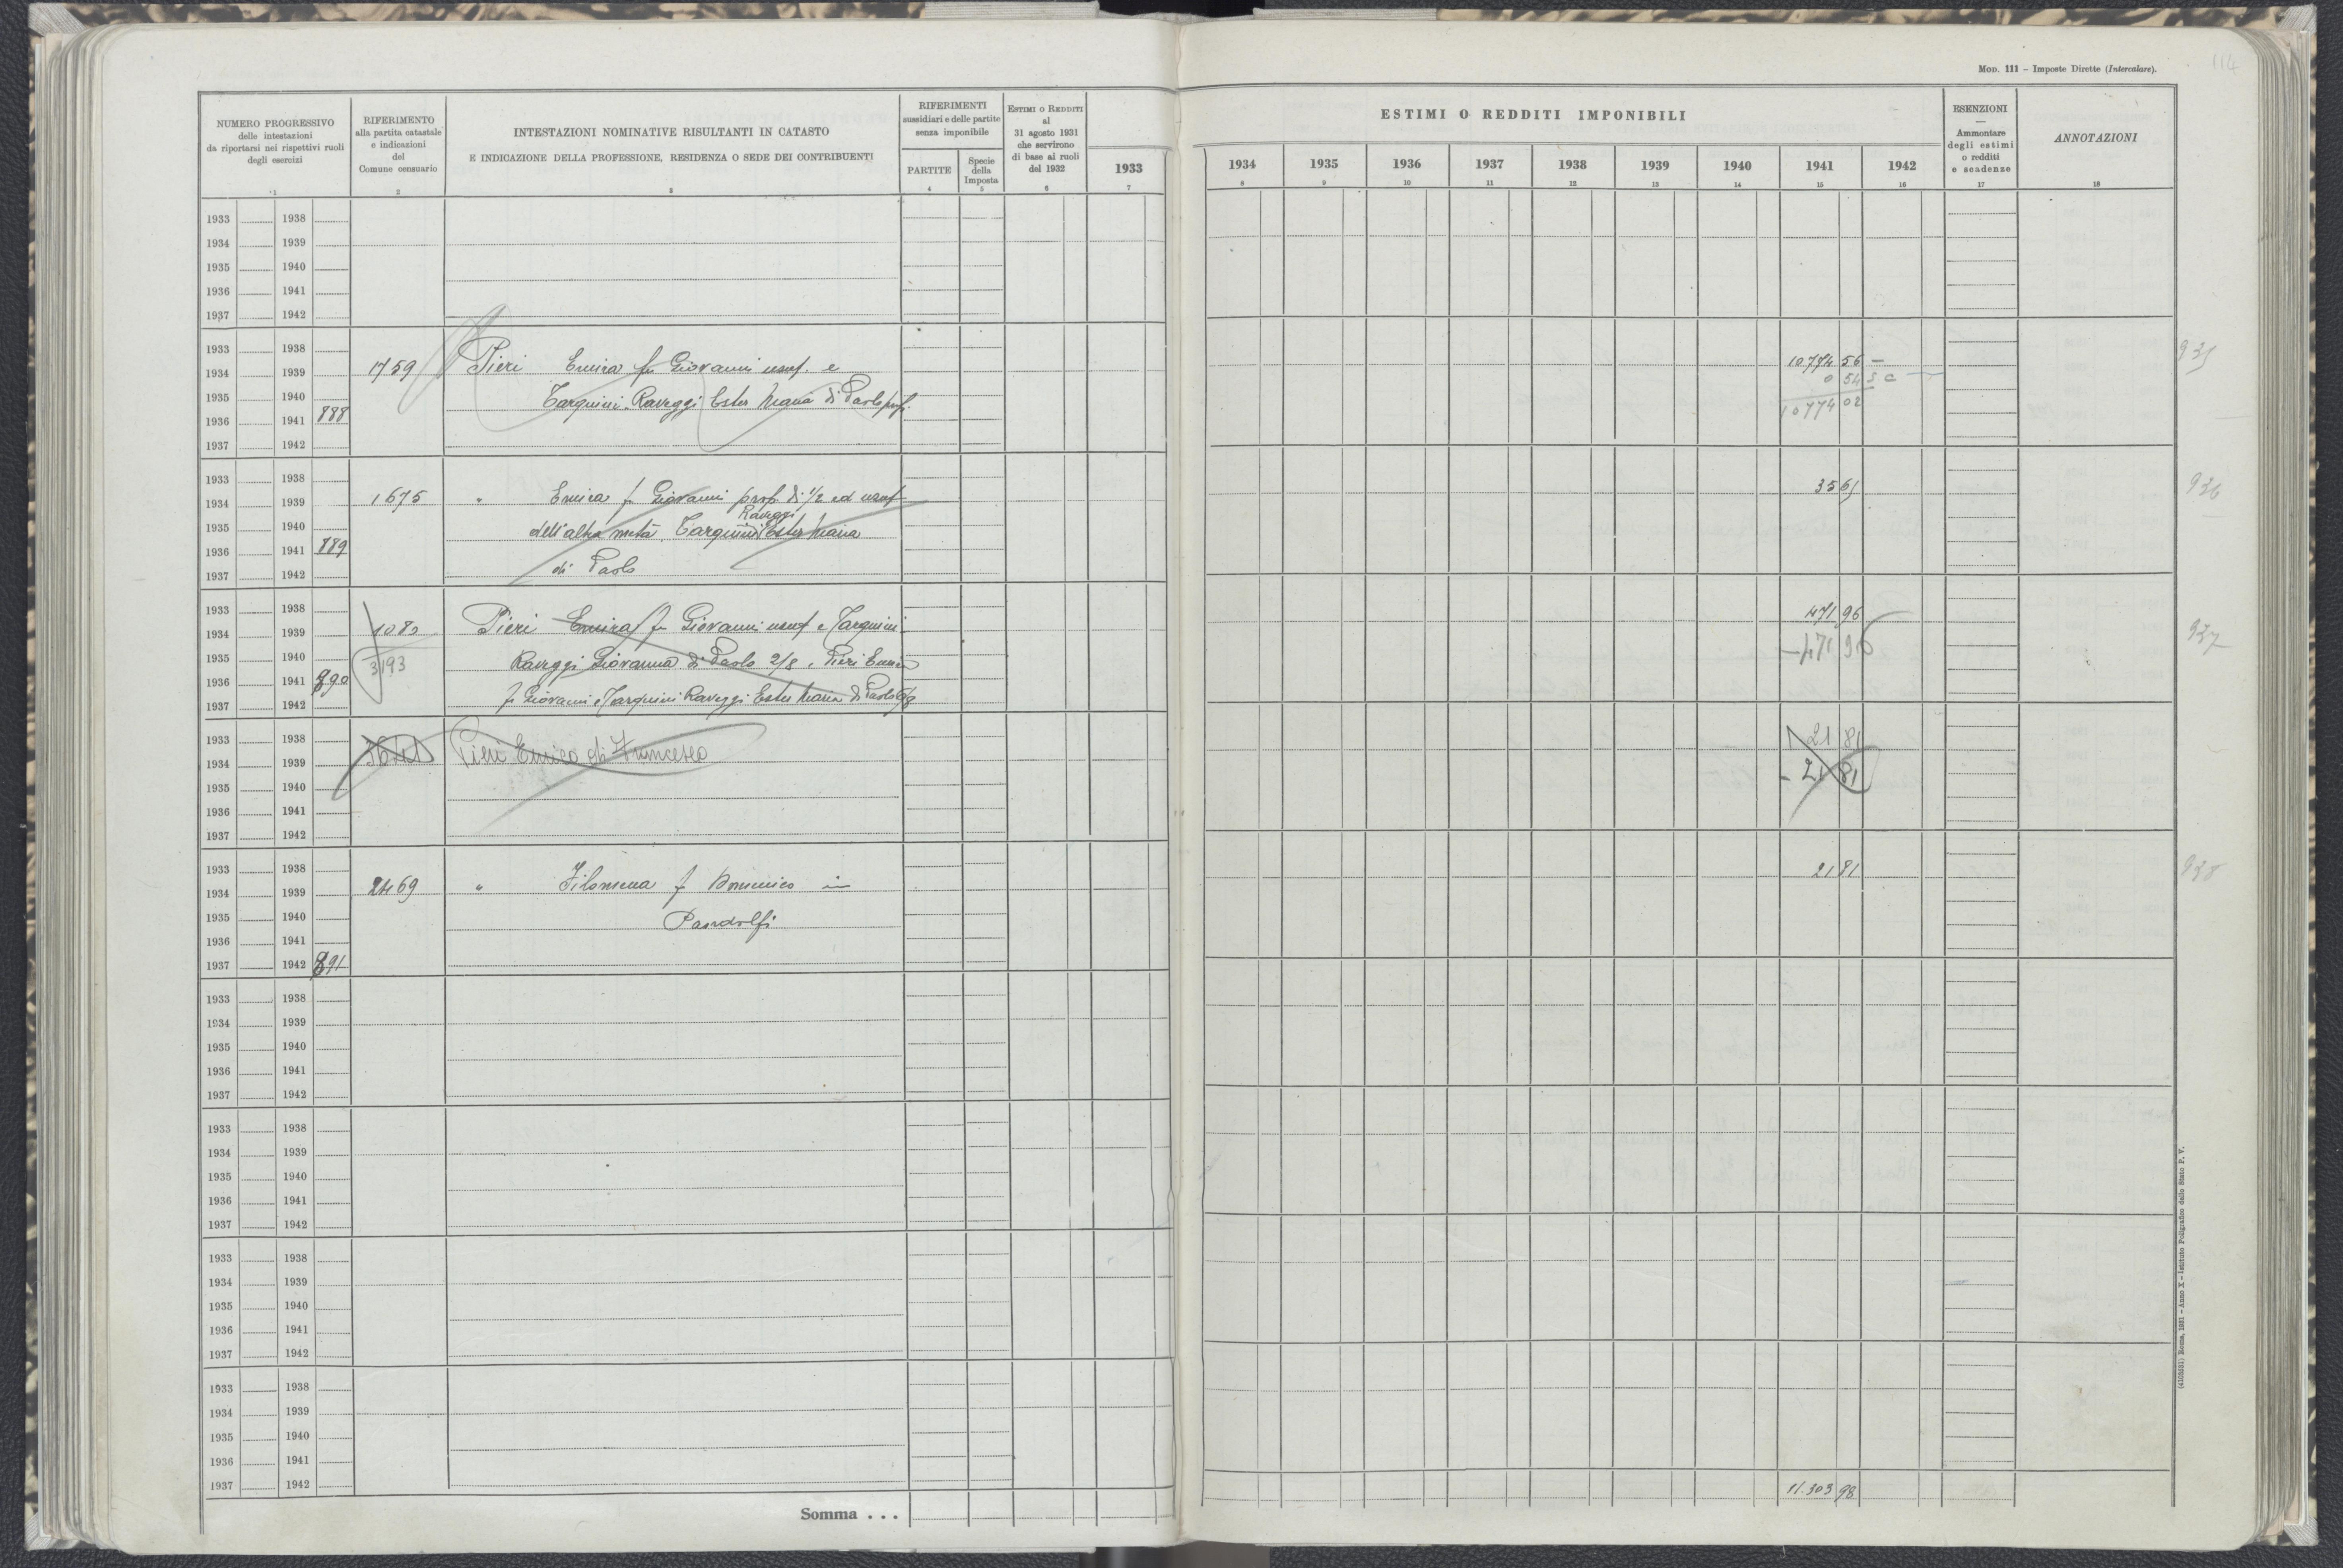 MOD. 111 – Imposte Dirette (Intercalare).
114
NUMERO PROGRESSIVO
delle intestazioni
da riportarsi nei rispettivi ruoli
degli esercizi
1
RIFERIMENTO
alla partita catastale
e indicazioni
del
Comune censuario
2
INTESTAZIONI NOMINATIVE RISULTANTI IN CATASTO
E INDICAZIONE DELLA PROFESSIONE, RESIDENZA O SEDE DEI CONTRIBUENTI
3
RIFERIMENTI
sussidiari e delle partite
senza imponibile
PARTITE
4
Specie
della
Imposta
5
ESTIMI O REDDITI
al
31 agosto 1931
che servirono
di base ai ruoli
del 1932
6
1933
7
ESTIMI O REDDITI IMPONIBILI
1934 1935 1936 1937 1938 1939 1940 1941 1942
8 9 10 11 12 13 14 15 16
ESENZIONI
—
Ammontare
degli estimi
o redditi
e scadenze
17
ANNOTAZIONI
18
1933 1938
1934 1939
1935 1940
1936 1941
1937 1942
1933 1938
1934 1939 1759 Pieri Emira fu Giovanni usuf. e 10774 56 –
0 54 S C
1935 1940 Tarquini Raveggi Ester Maria di Paolo prop.
10774 02
1936 1941 888
1937 1942
935
1933 1938
1934 1939 1675 " Emira f. Giovanni prop. di 1/2 ed usuf 35 65
Raveggi
1935 1940 dell'altra metà, Tarquini Ester Maria
1936 1941 889
1937 1942 di Paolo
936
1933 1938
1934 1939 1083 Pieri Emira fu Giovanni usuf e Tarquini 471 96
1935 1940 3193 Raveggi Giovanna di Paolo 2/8, Pieri Emira – 471 96
1936 1941 890
1937 1942 f. Giovanni e Tarquini Raveggi Ester Maria di Paolo 6/8
937
1933 1938 Pieri Enrico di Francesco 21 81
1934 1939 – 21 81
1935 1940
1936 1941
1937 1942
1933 1938
1934 1939 2469 " Filomena f. Domenico in 21 81
1935 1940 Pandolfi
1936 1941
1937 1942 891
938
1933 1938
1934 1939
1935 1940
1936 1941
1937 1942
1933 1938
1934 1939
1935 1940
1936 1941
1937 1942
1933 1938
1934 1939
1935 1940
1936 1941
1937 1942
1933 1938
1934 1939
1935 1940
1936 1941
1937 1942
Somma . . . 11.303 98
(4105031) Roma, 1931 – Anno X – Istituto Poligrafico dello Stato P. V.